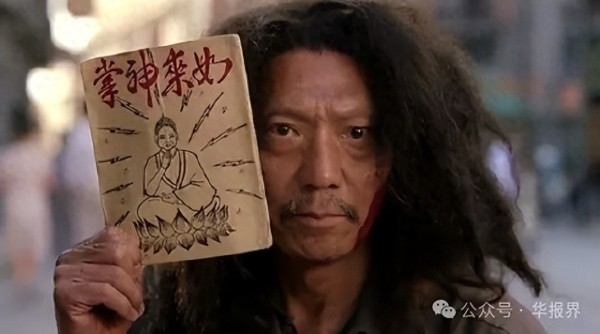 如來神掌
公众号 · 华报界